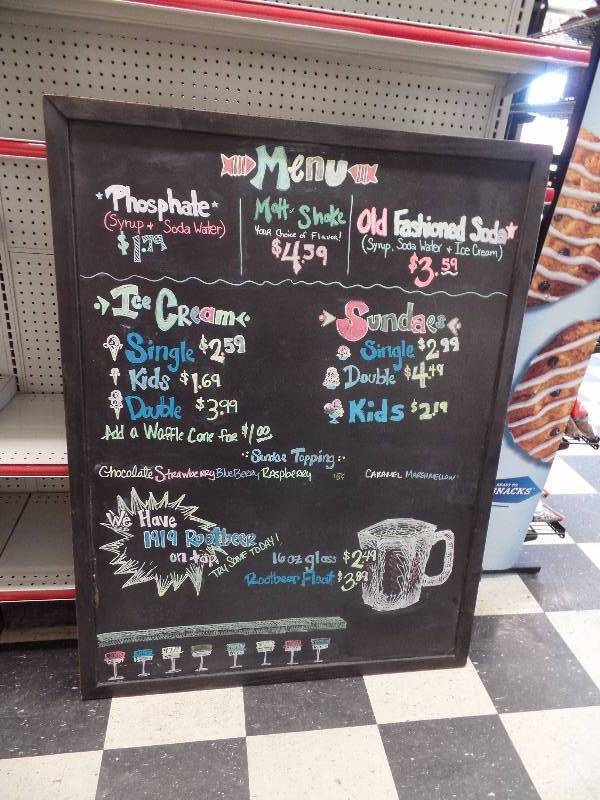 Menu
*Phosphate*
(Syrup + Soda Water)
$1.79
Malt-Shake
Your Choice of Flavor!
$4.59
Old Fashioned Soda*
(Syrup, Soda Water + Ice Cream)
$3.59
Ice Cream
Single $2.59
Kids $1.69
Double $3.99
Add a Waffle Cone for $1.00
Sundaes
Single $2.99
Double $4.49
Kids $2.19
Sundae Topping
Chocolate Strawberry BlueBerry Raspberry
Caramel Marshmellow
We Have
1919 Rootbeer
on tap
Try Some Today!
16 oz glass $2.49
Rootbeer Float $3.89
SNACKS